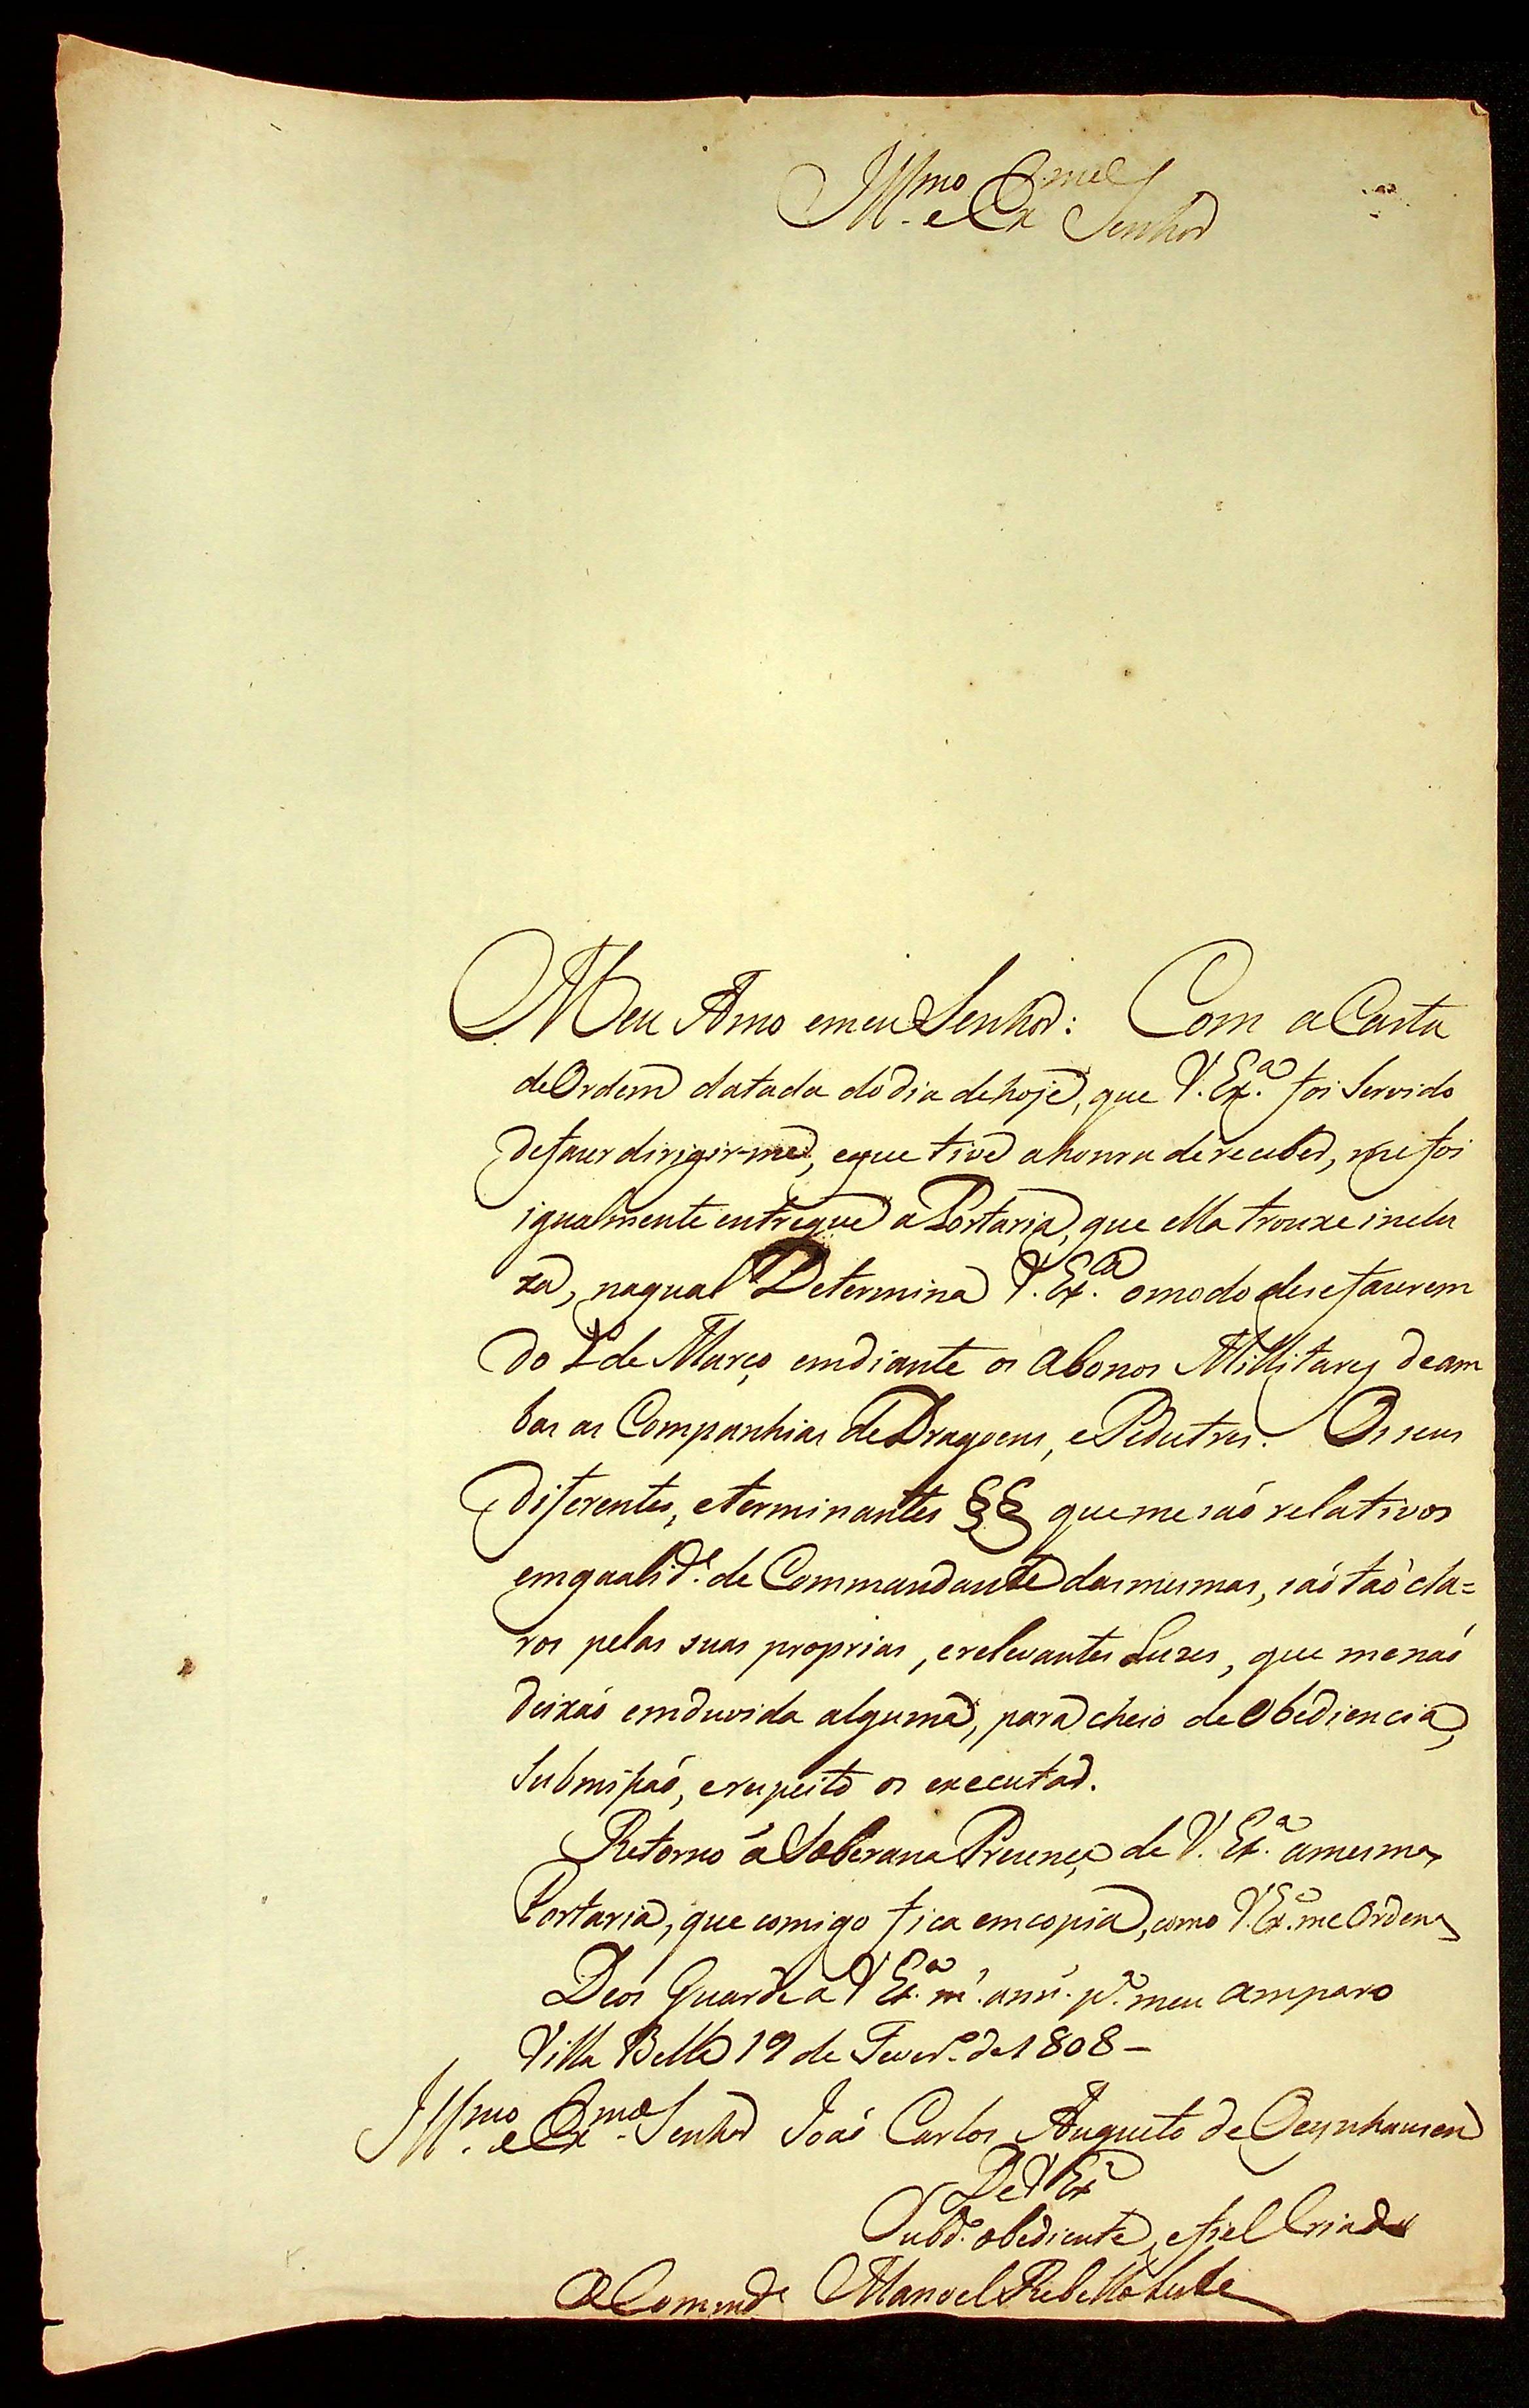 Ill.mo e Ex.mo Senhor
Meu Amo emeu Senhor: Com a Carta
deOrdem datada dodia dehoje, que V. Ex.a foi Servido
defazer dirigir-me, eque tive ahonra dereceber, me foi
igualmente entregue a Portaria, que ella trouxe inclu
za, naqual Determina V. Ex.a omodo desefazerem
do 1.o de Março emdiante os abonos Millitares deam
bas as Companhias deDragoens, ePedestres. Os seus
diferentes, eterminantes §§ quemesaó relativos
emqualid.e de Commandante dasmesmas, saó taó cla=
ros pelas suas proprias, erelevantes Luzes, que menaó
deixaó emduvida alguma, para cheio de Obediencia,
Submissaó, erespeito os executar.
Retorno á Soberana Presença de V. Ex.a amesma
Portaria, que comigo fica emcopia, como V. Ex.a me Ordena
Deos Guarde a V Ex.a m.s ann.s p.a meu amparo
Villa Bella 19 de Fever.o de 1808 –
Ill.mo e Ex.mo Senhor Joaó Carlos Augusto de Oeynhausen
De V Ex.a
Subd.o obediente, efiel Criado
O Comend.e Manoel Rebello Leite